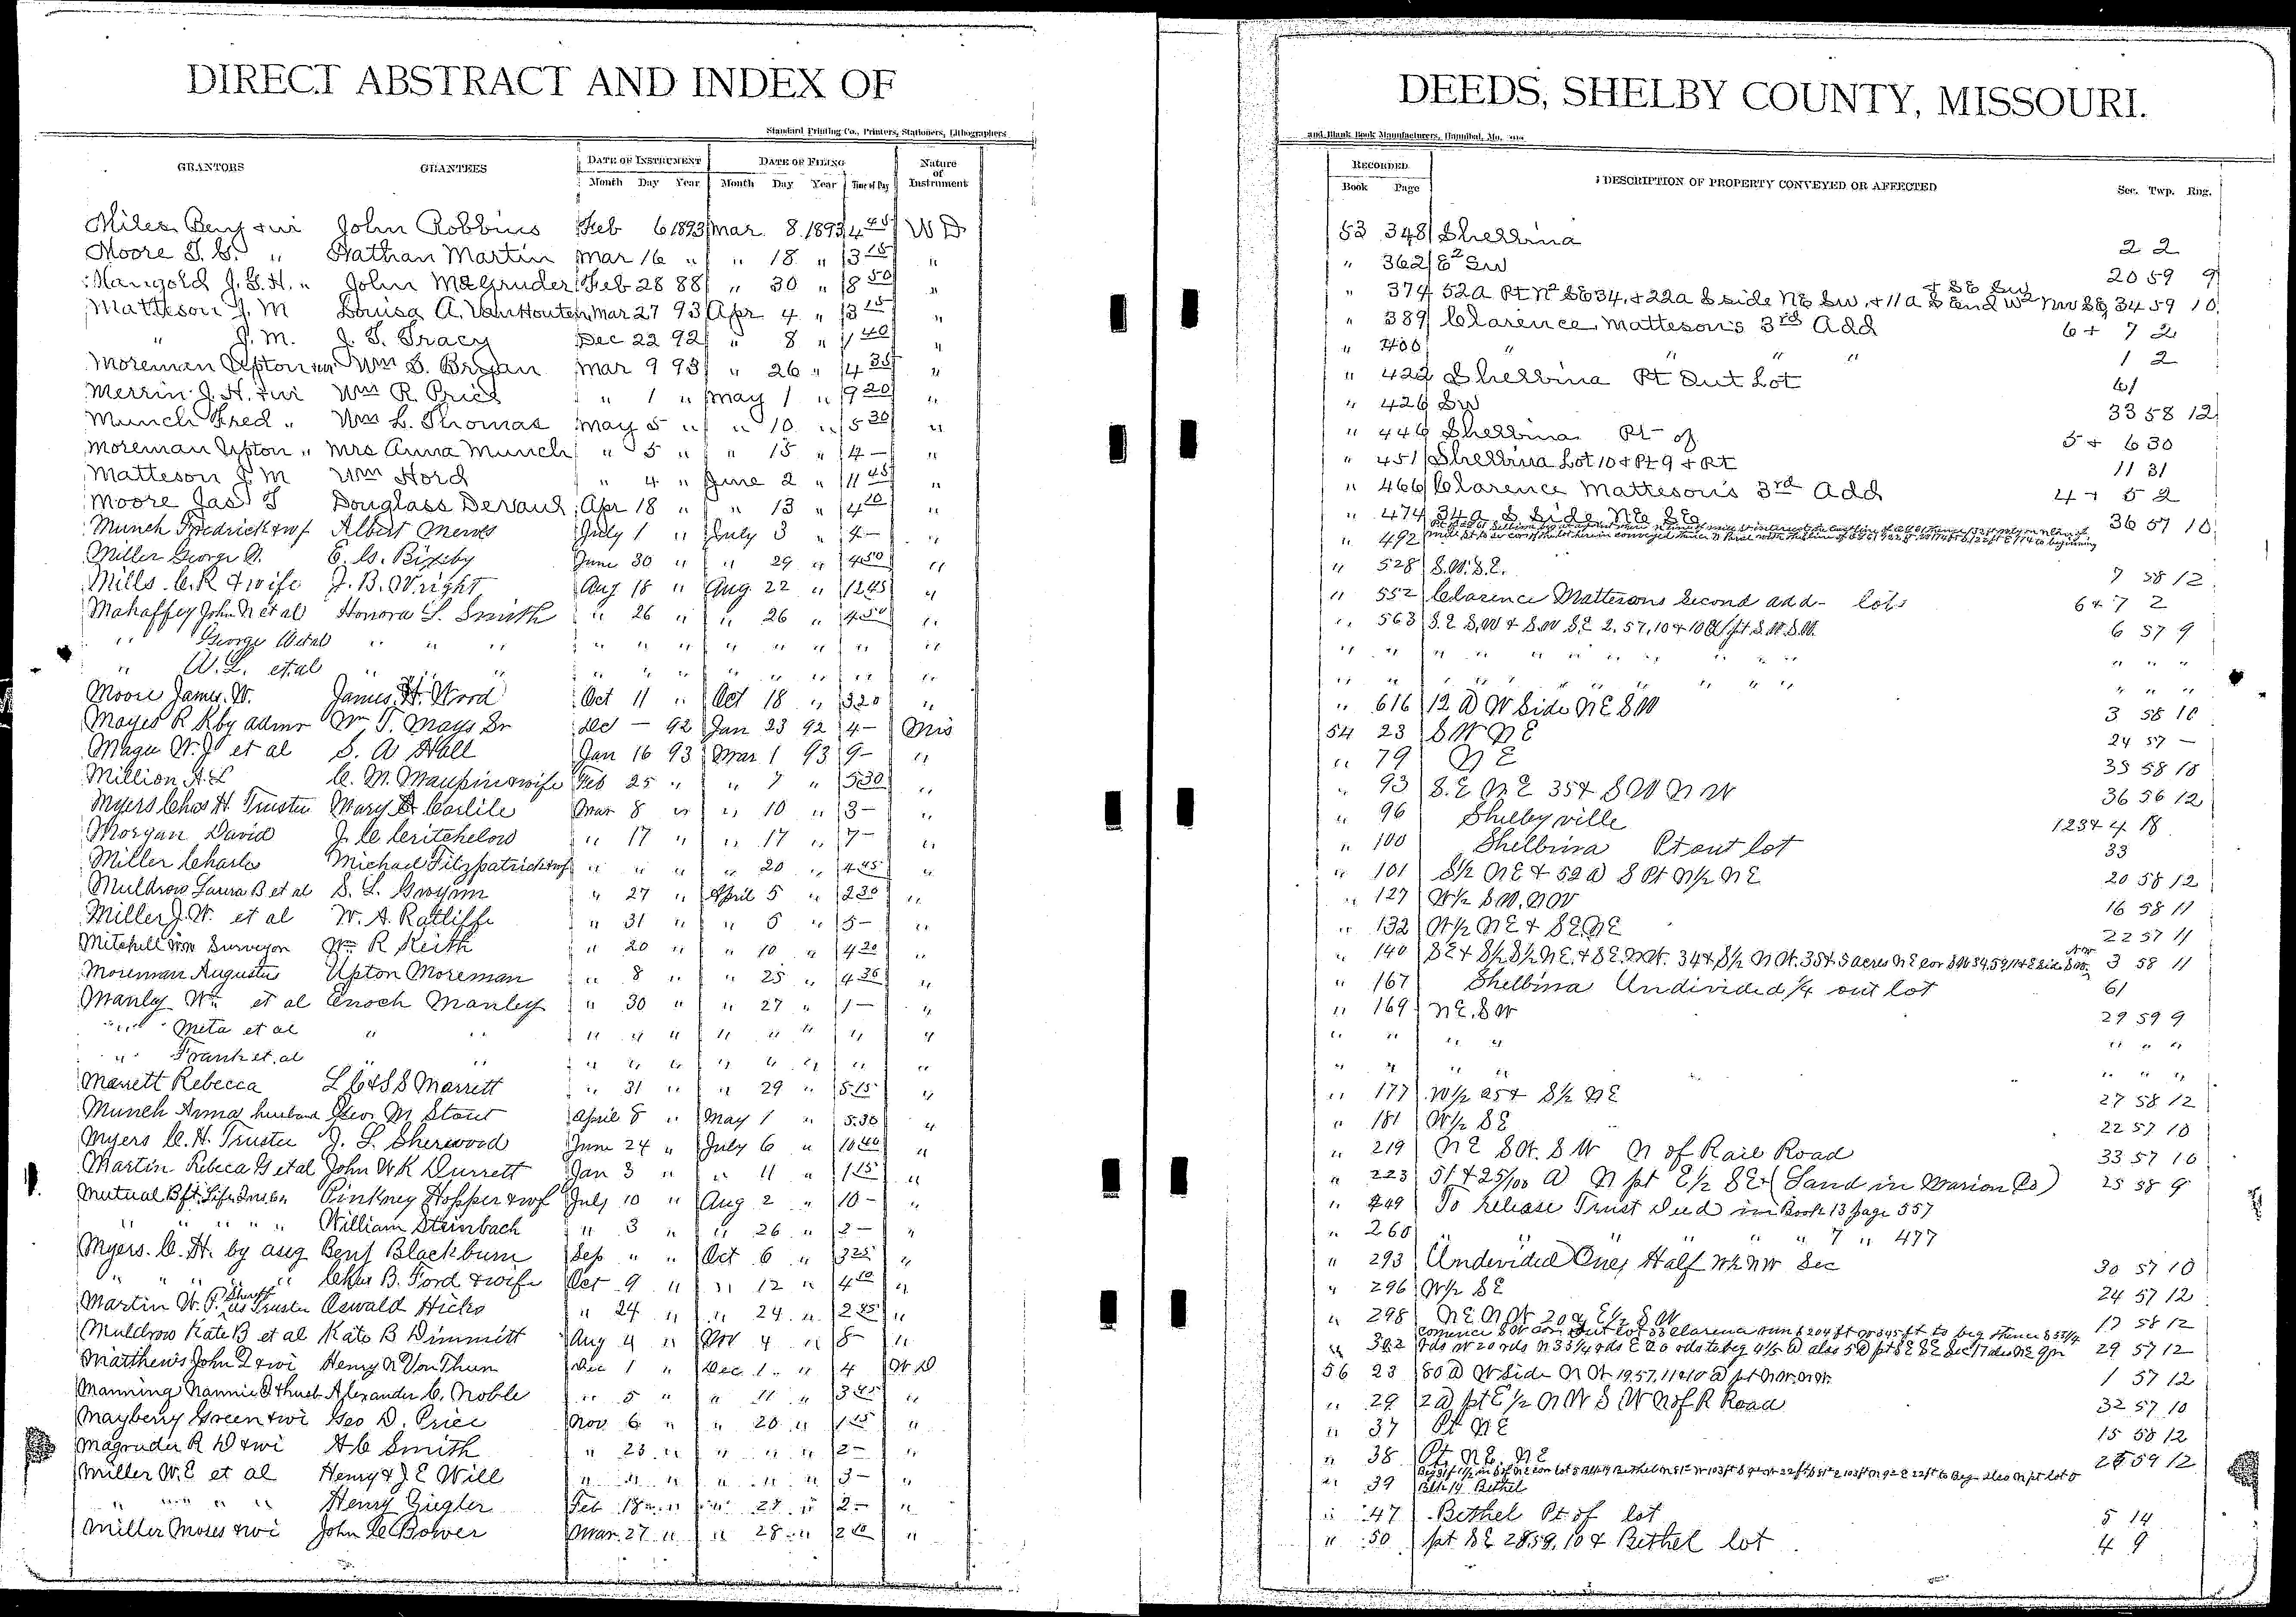 DIRECT ABSTRACT AND INDEX OF
Standard Printing Co., Printers, Stationers, Lithographers
GRANTORS GRANTEES DATE OF INSTRUMENT DATE OF FILING Nature of Instrument
Month Day Year Month Day Year Time of Day
Miles Benj + wi John Robbins Feb 6 1893 Mar. 8 1893 4 45 W D
Moore T. G. " Nathan Martin Mar 16 " " 18 " 3 15 "
Mangold J. G. H. " John McGruder Feb 28 88 " 30 " 8 50 "
Matteson J. M Louisa A. VanHouten Mar 27 93 Apr 4 " 3 15 "
" J. M. J. T. Tracy Dec 22 92 " 8 " 1 40 "
Moreman Upton + wi Wm S. Bryan Mar 9 93 " 26 " 4 35 "
Merrin J. H. + wi Wm R. Price " 1 " May 1 " 9 20 "
Munch Fred " Wm L. Thomas May 5 " " 10 " 5 30 "
Moreman Upton " Mrs Anna Munch " 5 " " 15 " 4 - "
Matteson J. M Wm Hord " 4 " June 2 " 11 45 "
Moore Jas T Douglass Devaul Apr 18 " " 13 " 4 10 "
Munch Fredrick + wf Albert Merks July 1 " July 3 " 4 - "
Miller George A. E. G. Bixby June 30 " " 29 " 4 50 "
Mills C. R + wife J. B. Wright Aug 18 " Aug 22 " 12 45 "
Mahaffey John N et al Honora L. Smith " 26 " " 26 " 4 50 "
" George W et al " " " " " " " " " " "
" W. L. et al " " " " " " " " " " "
Moore James. W. James H. Wood Oct 11 " Oct 18 " 3 20 "
Mayes R K by admr Wm T. Mays Sr Dec - 92 Jan 23 92 4 - Mis
Magee W. J. et al S. A Hall Jan 16 93 Mar 1 93 9 - "
Million A. L C. M. Maupin + wife Feb 25 " " 7 " 5 30 "
Myers Chas H. Trustee Mary E Carlile Mar 8 " " 10 " 3 - "
Morgan David J. C Critchelow " 17 " " 17 " 7 - "
Miller Charles Michael Fitzpatrick + wf " " " " 20 " 4 45 "
Muldrow Laura B et al S. L. Gwynn " 27 " April 5 " 2 30 "
Miller J. W. et al W. A. Ratliffe " 31 " " 5 " 5 - "
Mitchell Wm Surveyor Wm R Keith " 20 " " 10 " 4 20 "
Moreman Augustus Upton Moreman " 8 " " 25 " 4 36 "
Manley Wm et al Enoch Manley " 30 " " 27 " 1 - "
" Meta et al " " " " " " " " " "
" Frank et al " " " " " " " " " "
Marrett Rebecca L C + S S Marrett " 31 " " 29 " 5 15 "
Munch Anna husband Geo M Stout April 8 " May 1 " 5 30 "
Myers C. H. Trustee J. L. Sherwood June 24 " July 6 " 10 40 "
Martin Rebeca G et al John W K Durrett Jan 3 " " 11 " 1 15 "
Mutual Bft. Life Ins Co Pinkney Hopper + wf July 10 " Aug 2 " 10 - "
" " " " William Steinbach " 3 " " 26 " 2 - "
Myers. C. H. by assg Benj Blackburn Sep " " Oct 6 " 3 25 "
" " " " Chas B. Ford + wife Oct 9 " " 12 " 4 10 "
Martin W. P. Sheriff as Trustee Oswald Hicks " 24 " " 24 " 2 45 "
Muldrow Kate B et al Kate B Dimmitt Aug 4 " Nov 4 " 8 - "
Matthews John Q + wi Henry N Von Thun Dec 1 " Dec 1 " 4 W D
Manning Nannie D + husb Alexander C. Noble " 5 " " 11 " 3 45 "
Mayberry Green + wi Geo D. Price Nov 6 " " 20 " 1 15 "
Magruder R D + wi A C Smith " 23 " " " " 2 - "
Miller W. E et al Henry + J E Will " " " " " " 3 - "
" " " " Henry Ziegler Feb 18 " " 27 " 2 - "
Miller Moses + wi John C Bower Mar 27 " " 28 " 2 10 "
DEEDS, SHELBY COUNTY, MISSOURI.
and Blank Book Manufacturers, Hannibal, Mo.
RECORDED DESCRIPTION OF PROPERTY CONVEYED OR AFFECTED Sec. Twp. Rng.
Book Page
53 348 Shelbina 2 2
" 362 E2 SW 20 59 9
" 374 52a Pt N2 SE 34, + 22a S side NE SW, + 11 a S End W2 NW SE + SE SW 34 59 10
" 389 Clarence Matteson's 3rd Add 6 + 7 2
" 400 " " " " 1 2
" 422 Shelbina Pt Out Lot 61
" 426 SW 33 58 12
" 446 Shelbina Pt of 5 + 6 30
" 451 Shelbina Lot 10 + Pt 9 + Pt 11 31
" 466 Clarence Matteson's 3rd Add 4 + 5 2
" 474 34 a S Side NE SE 36 57 10
" 492
" 528 S. W. S. E. 7 58 12
" 552 Clarence Mattesons Second add - lots 6 + 7 2
" 563 S. E S. W + S. W S. E 2, 57, 10 + 10 a pt S. W. S. W. 6 57 9
" " " " " " " " " " " " "
" " " " " " " " " " " " "
" 616 12 a W Side N E S W 3 58 10
54 23 S W N E 24 57 -
" 79 N E 35 58 10
" 93 S. E N E 35 + S W N W 36 56 12
" 96 Shelbyville 1 2 3 + 4 18
" 100 Shelbina Pt out lot 33
" 101 S 1/2 N E + 52 a S Pt N 1/2 N E 20 58 12
" 127 W 1/2 S W. N W 16 58 11
" 132 W 1/2 N E + S E N E 22 57 11
" 140 S E + S 1/2 S 1/2 N E. + S E. N W. 34 + S 1/2 N W. 35 + 5 acres N E cor 3 58 11
" 167 Shelbina Undivided 1/4 out lot 61
" 169 N E. S W 29 59 9
" " " " " " "
" " " " " " "
" 177 W 1/2 25 + S 1/2 N E 27 58 12
" 181 W 1/2 S E 22 57 10
" 219 N E S W. S W N of Rail Road 33 57 10
" 223 51 + 25/100 a N pt E 1/2 S E (Land in Marion Co) 25 58 9
" 249 To release Trust Deed in Book 13 page 557
" 260 " " " " " 7 " 477
" 293 Undivided One Half W 1/2 N W Sec 30 57 10
" 296 W 1/2 S E 24 57 12
" 298 N E N W 20 + E 1/2 S W 17 58 12
" 302 Comence S W cor out lot 33 Clarence run 29 57 12
56 23 80 a W Side N W 19, 57, 11 + 10 a pt N W. N W. 1 57 12
" 29 2 a pt E 1/2 N W S W N of R Road 32 57 10
" 37 Pt N E 15 58 12
" 38 Pt. N E. N E 26 59 12
" 39 Blk 14 Bethel
" 47 Bethel Pt of lot 5 14
" 50 pt S E 28, 59, 10 + Bethel lot 4 9